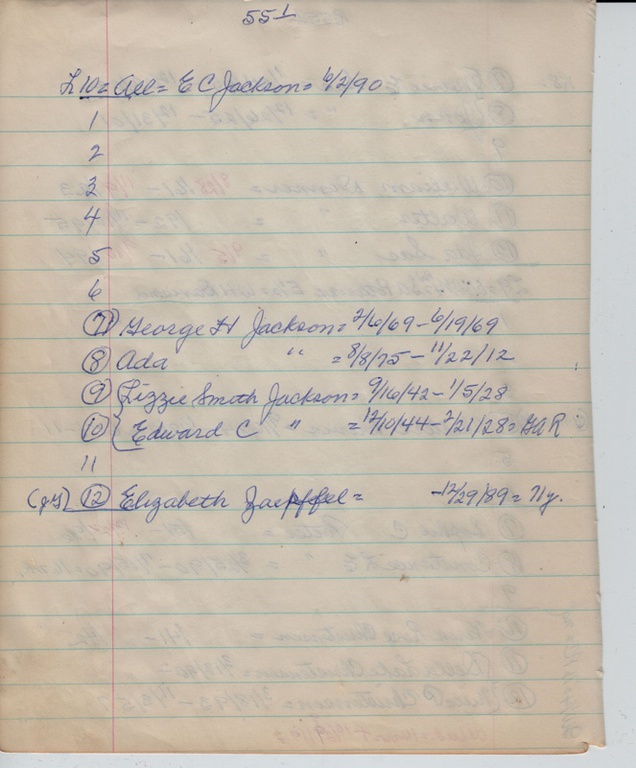 551
L 10 = All = E C Jackson = 6/2/90
1
2
3
4
5
6
(7) George H Jackson = 2/6/69 - 6/19/69
(8) Ada " = 8/8/75 - 11/22/12
(9) { Lizzie Smith Jackson = 9/16/42 - 1/5/28
(10) { Edward C " = 12/10/44 - 2/21/28 = GAR
11
(12) Elizabeth = - 12/29/89 = Ny.